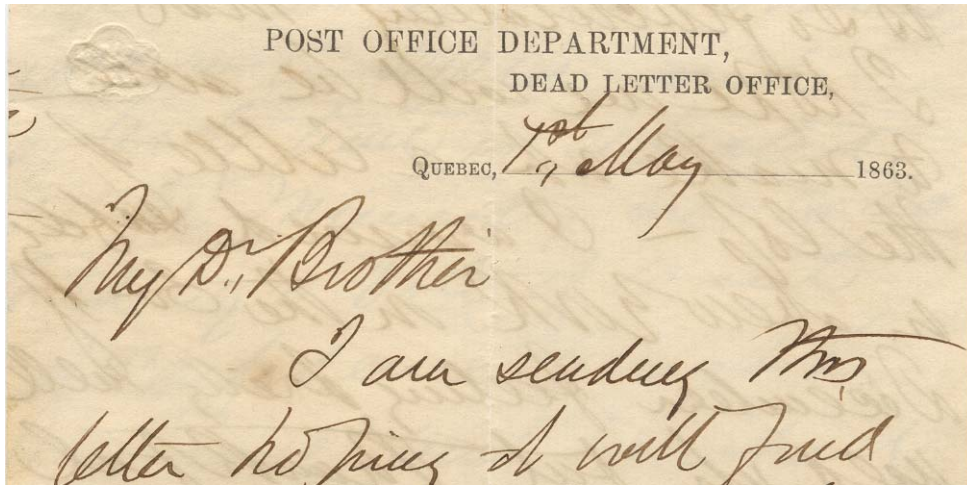 POST OFFICE DEPARTMENT,
DEAD LETTER OFFICE,
QUEBEC, 1st, May 1863.
My Dr, Brother
I am sending this
letter hoping it will find